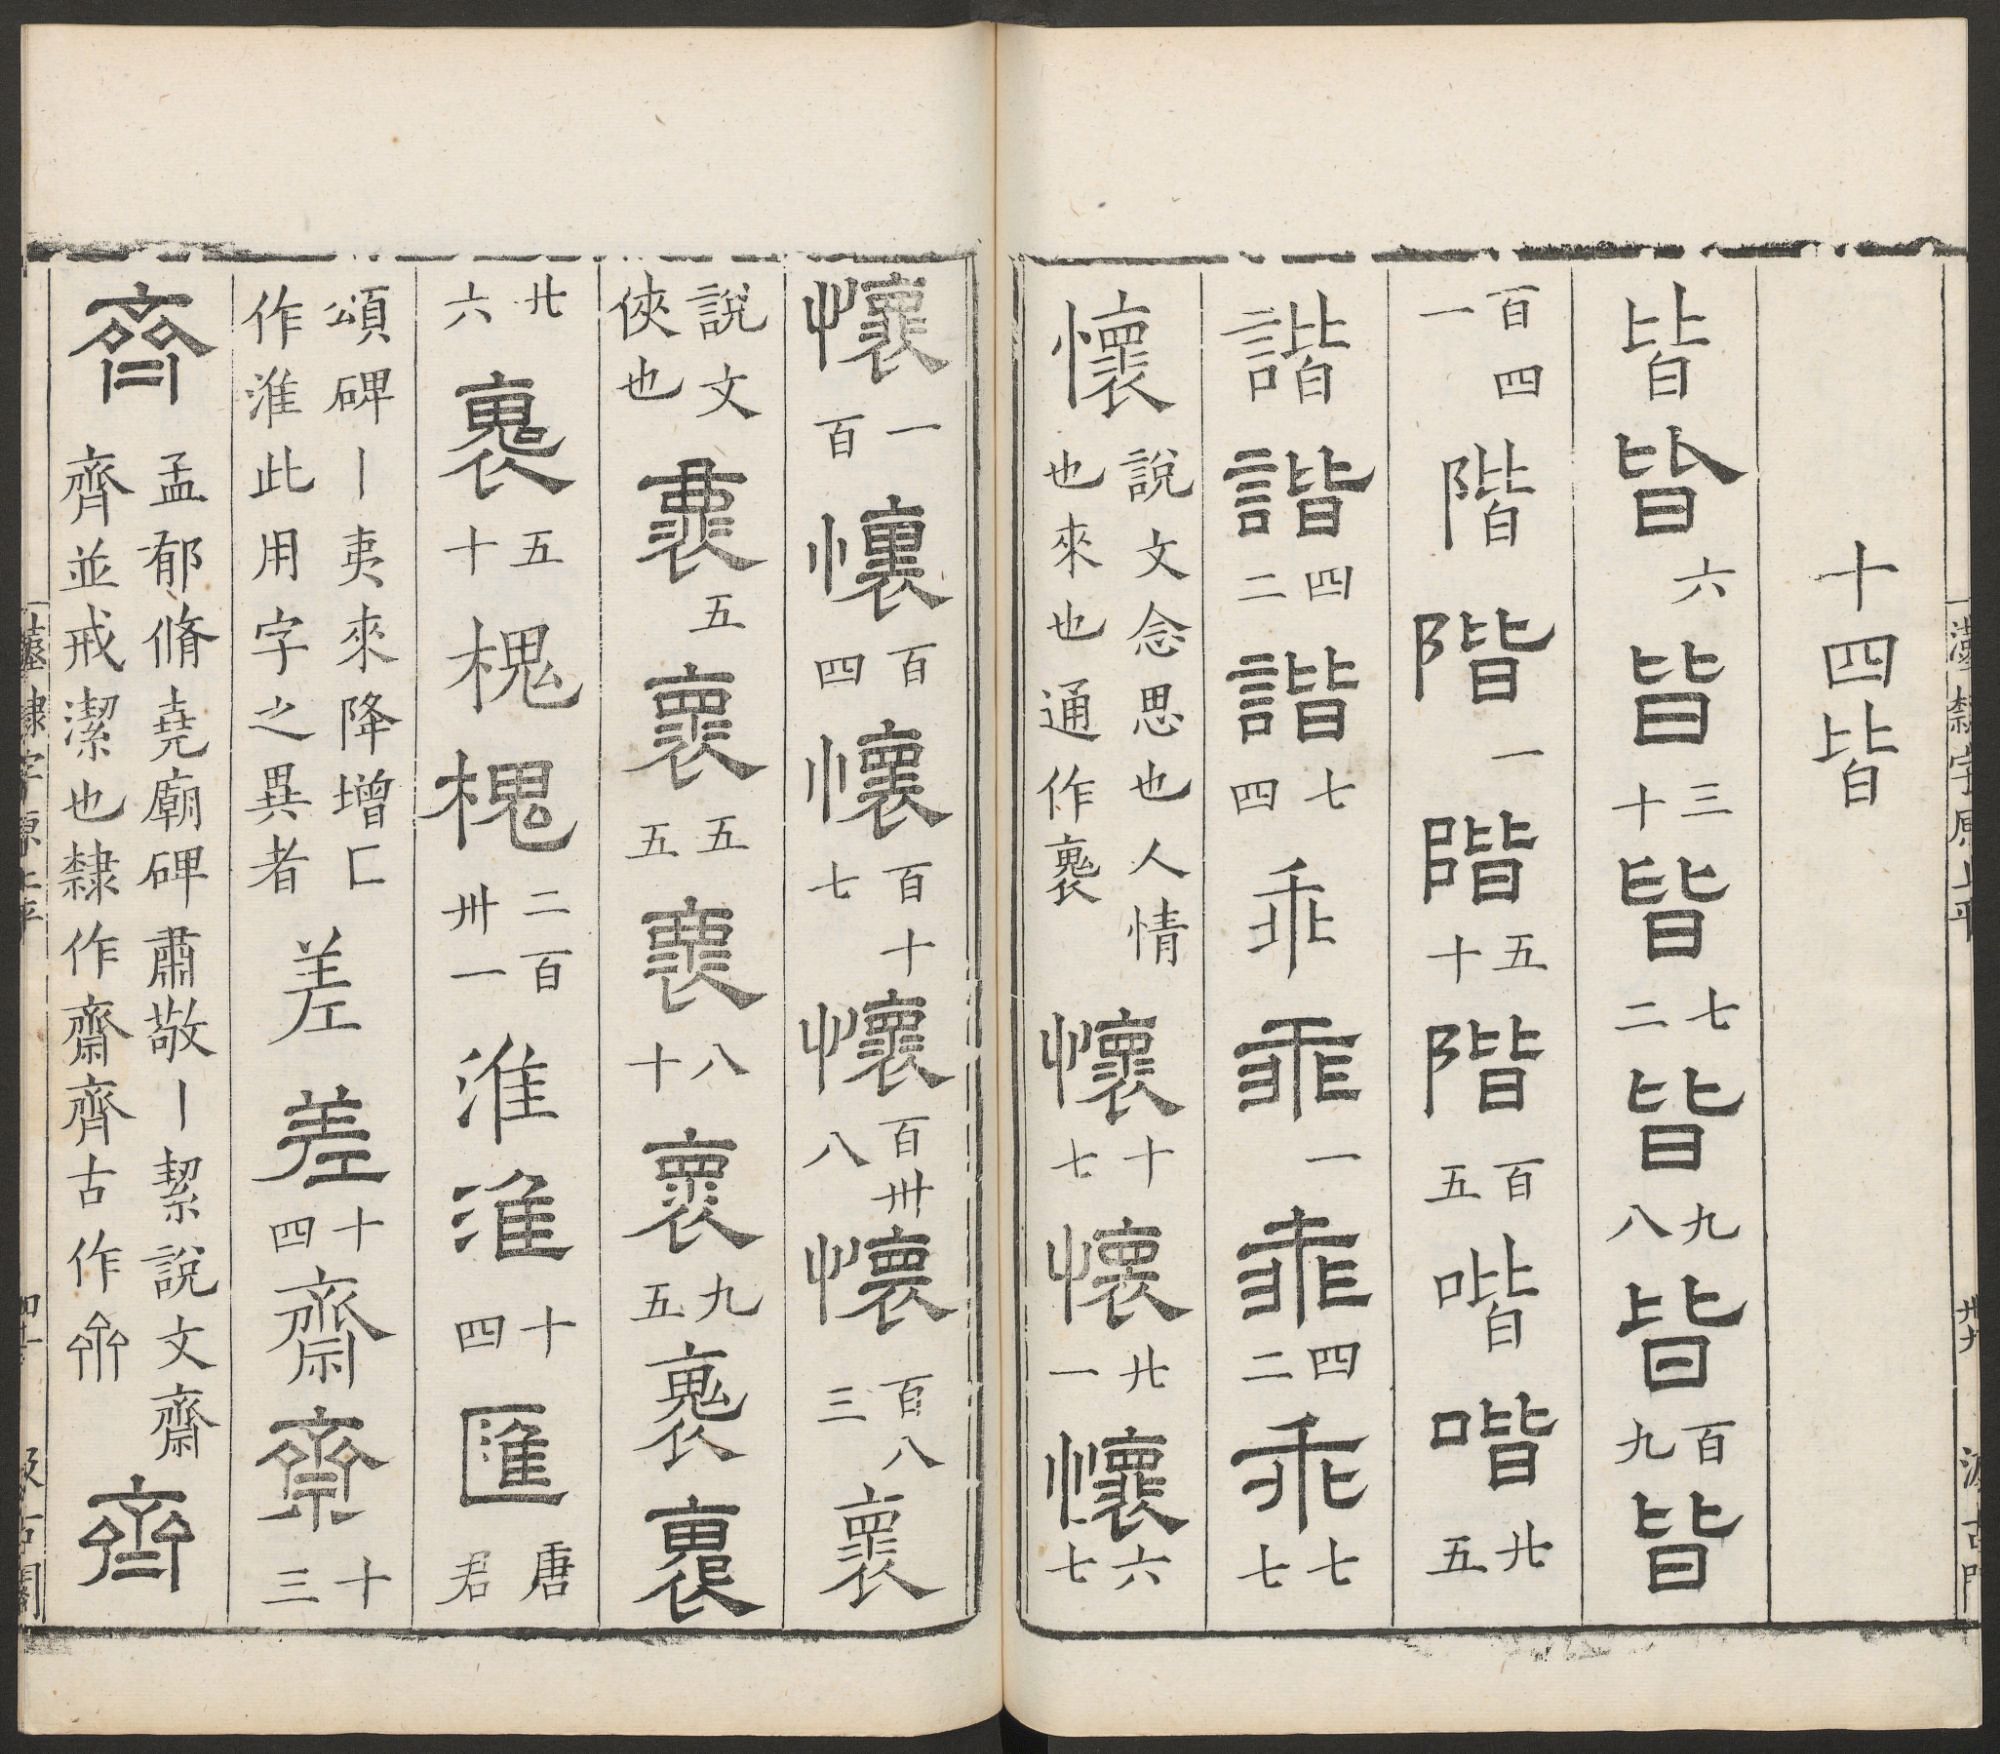 十四皆
皆皆六皆三十皆七二皆九八皆百九皆
百四一階階一階五十階百五喈喈廿五
諧諧四二諧七四乖乖一乖四二乖七七
懷說文念思也人情也來也通作褱懷十七懷廿一懷六七
懷一百懷百四懷百十七懷百卅八懷百八三褱
說文俠也褱五褱五五褱八十褱九五褢褢
廿六褢五十槐槐二百卅一淮淮十四匯唐君
頌碑丨夷來降增匚作淮此用字之異者差差十四齋齋十三
齊孟郁脩堯廟碑肅敬丨絜說文齋齊並戒潔也隸作齋齊古作𠫼齊
漢隸字原上平
卅九
汲古閣
漢隸字原上平
四十
汲古閣